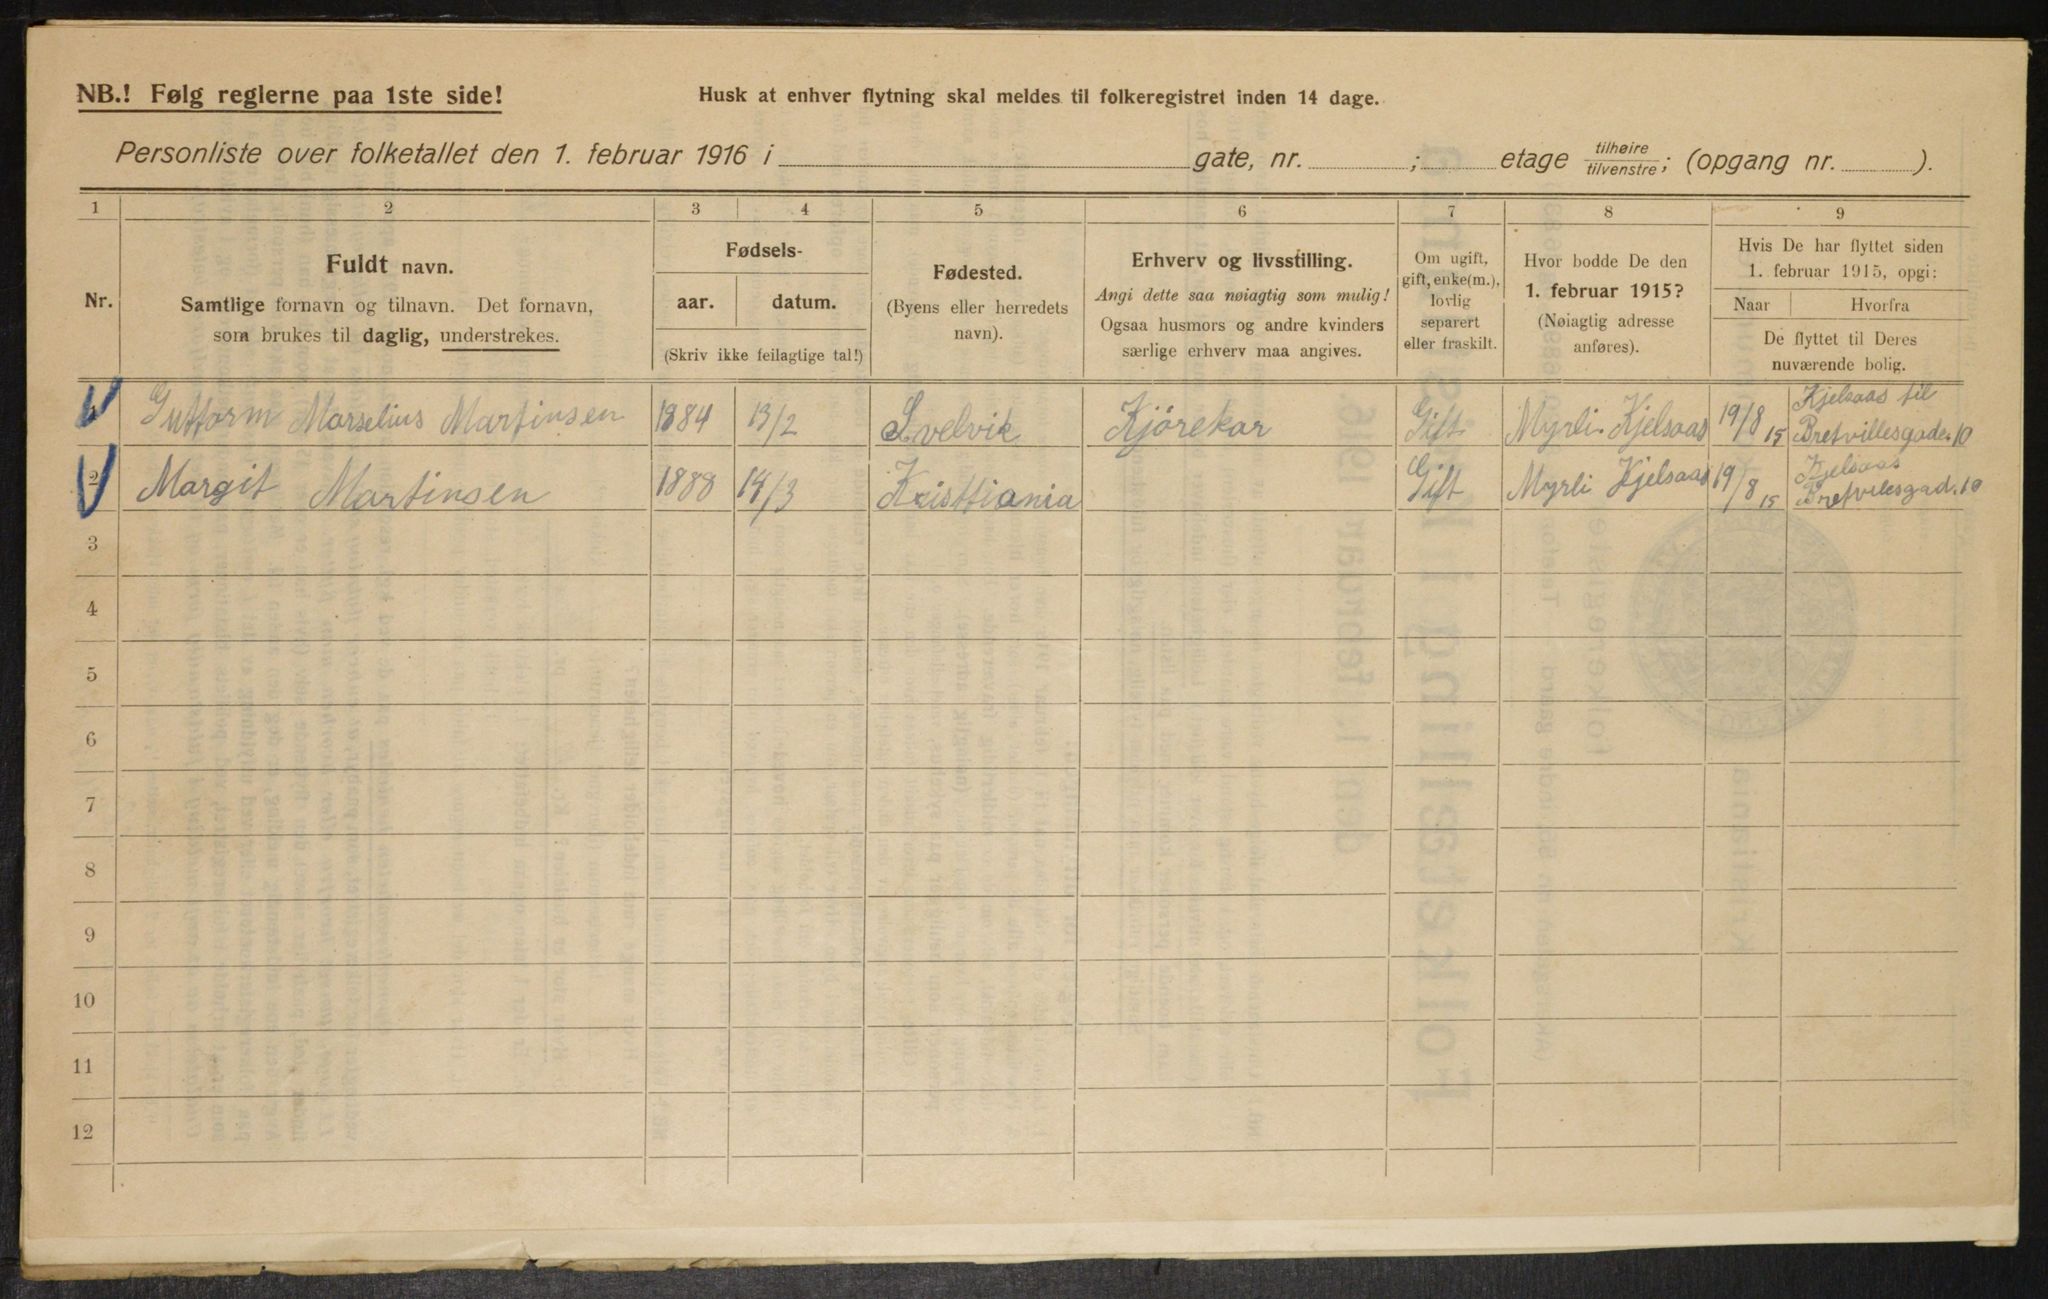 NB.! Følg reglerne paa 1ste side!
Husk at enhver flytning skal meldes til folkeregistret inden 14 dage.
Personliste over folketallet den 1. februar 1916 i gate, nr. ; etage tilhøire/tilvenstre; (opgang nr. ).
1 2 3 4 5 6 7 8 9
Nr.
Fuldt navn.
Samtlige fornavn og tilnavn. Det fornavn,
som brukes til daglig, understrekes.
Fødsels-
aar. datum.
(Skriv ikke feilagtige tal!)
Fødested.
(Byens eller herredets
navn).
Erhverv og livsstilling.
Angi dette saa nøiagtig som mulig!
Ogsaa husmors og andre kvinders
særlige erhverv maa angives.
Om ugift,
gift, enke(m.),
lovlig
separert
eller fraskilt.
Hvor bodde De den
1. februar 1915?
(Nøiagtig adresse
anføres).
Hvis De har flyttet siden
1. februar 1915, opgi:
Naar Hvorfra
De flyttet til Deres
nuværende bolig.
1 Guttorm Marselius Martinsen 1884 13/2 Svelvik Kjörekar Gift Myrli Kjelsaas 19/8 15 Kjelsaas til
Bretvillesgade 10
2 Margit Martinsen 1888 14/3 Kristtiania Gift Myrli Kjelsaas 19/8 15 Kjelsaas
Bretvilesgad. 10
3
4
5
6
7
8
9
10
11
12